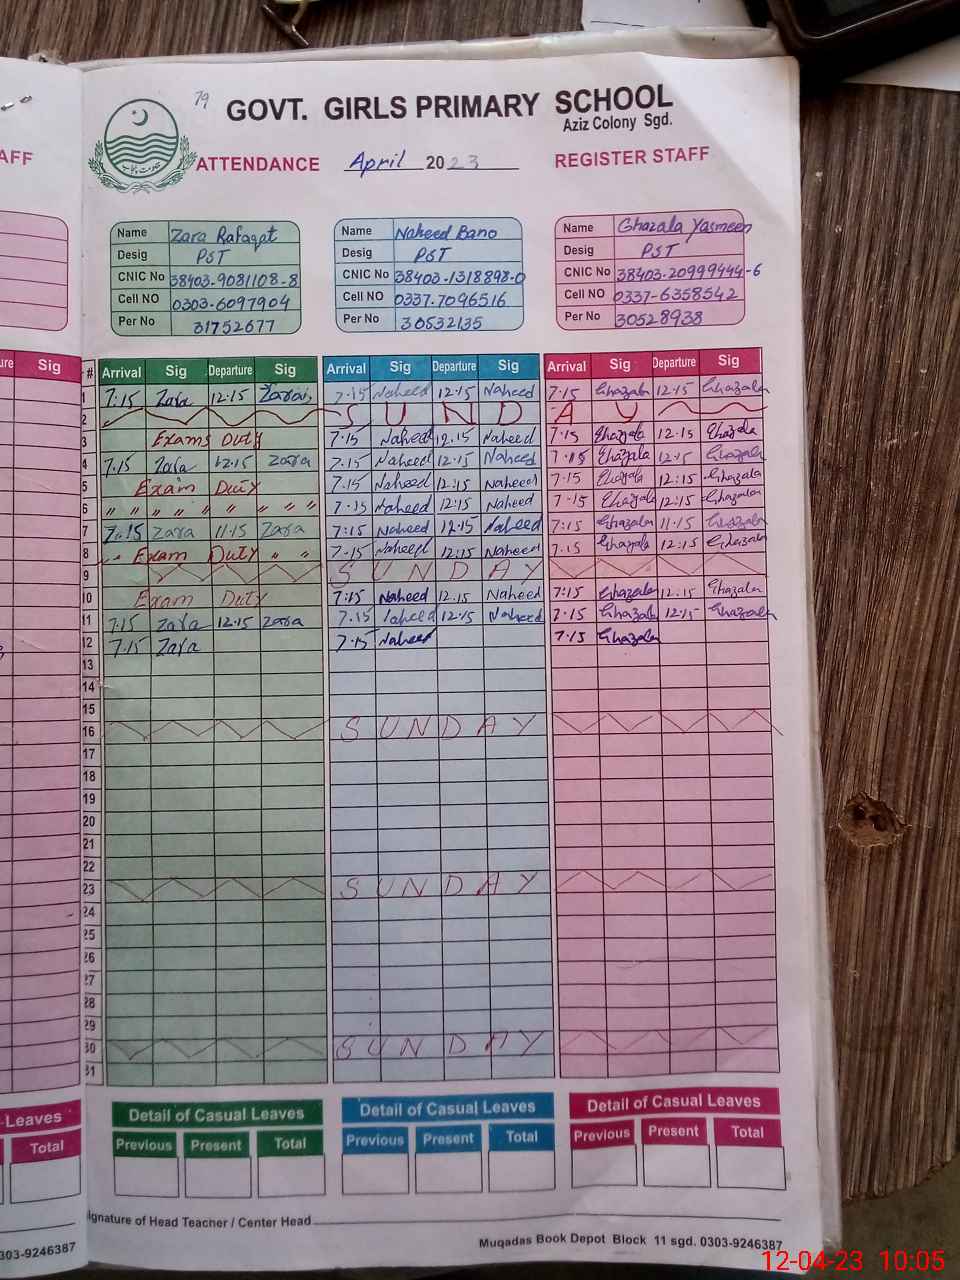 79
GOVT. GIRLS PRIMARY SCHOOL
Aziz Colony Sgd.
AFF
ATTENDANCE April 2023 REGISTER STAFF
Name Zara Rafaqat Name Naheed Bano Name Ghazala Yasmeen
Desig PST Desig PST Desig PST
CNIC No 38403-9081108-8 CNIC No 38403-1318898-0 CNIC No 38403-20999444-6
Cell NO 0303-6097904 Cell NO 0337-7096516 Cell NO 0337-6358542
Per No 31752677 Per No 30532135 Per No 30528938
ure Sig # Arrival Sig Departure Sig Arrival Sig Departure Sig Arrival Sig Departure Sig
1 7:15 Zara 12:15 7:15 Naheed 12:15 Naheed 7:15 Ghazala 12:15 Ghazala
2 S U N D A Y
3 Exams Duty 7:15 Naheed 12.15 Naheed 7:15 Ghazala 12:15 Ghazala
4 7.15 Zara 12.15 Zara 7.15 Naheed 12.15 Naheed 7.15 Ghazala 12:15 Ghazala
5 Exam Duty 7.15 Naheed 12:15 Naheed 7.15 Ghazala 12:15 Ghazala
6 " " " " " " " " 7.15 Naheed 12:15 Naheed 7.15 Ghazala 12:15 Ghazala
7 7:15 Zara 11:15 Zara 7:15 Naheed 12.15 Naheed 7:15 Ghazala 11.15 Ghazala
8 " Exam Duty " " 7.15 Naheed 12:15 Naheed 7.15 Ghazala 12:15 Ghazala
9 S U N D A Y
10 Exam Duty 7:15 Naheed 12.15 Naheed 7:15 Ghazala 12.15 Ghazala
11 7.15 Zara 12.15 Zara 7.15 Naheed 12.15 Naheed 7.15 Ghazala 12.15 Ghazala
12 7.15 Zara 7.15 Naheed 7.15 Ghazala
13
14
15
16 S U N D A Y
17
18
19
20
21
22
23 S U N D A Y
24
25
26
27
28
29
30 S U N D A Y
31
Leaves Detail of Casual Leaves Detail of Casual Leaves Detail of Casual Leaves
Total Previous Present Total Previous Present Total Previous Present Total
ignature of Head Teacher / Center Head
303-9246387 Muqadas Book Depot Block 11 sgd. 0303-9246387
12-04-23 10:05